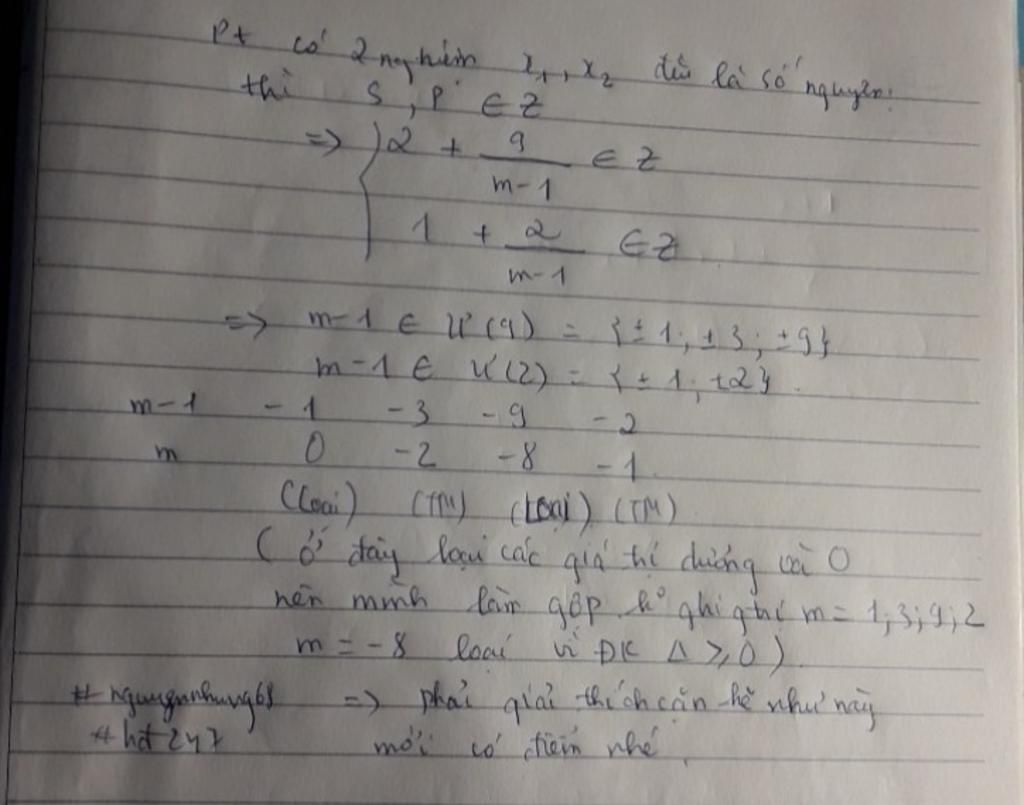 Pt có 2 nghiệm x₁, x₂ đều là số nguyên:
thì S, P ∈ Z
=> { 2 + 9/(m-1) ∈ Z
1 + 2/(m-1) ∈ Z
=> m-1 ∈ Ư(9) = {±1; ±3; ±9}
m-1 ∈ Ư(2) = {±1; ±2}.
m-1 -1 -3 -9 -2
m 0 -2 -8 -1
(Loại) (TM) (Loại) (TM)
(Ở đây loại các giá trị dương và 0
nên mình làm gộp k° ghi m = 1; 3; 9; 2
m = -8 loại vì ĐK Δ ≥ 0)
#nguyennhung68 => phải giải thích cặn kẽ như này
#hdt247 mới có điểm nhé.